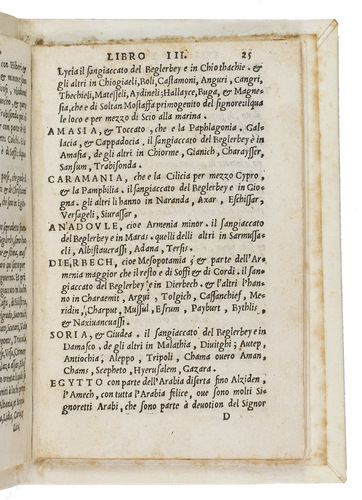 LIBRO III. 25
Lycia il sangiaccato del Beglerbey e in Chiothachie. &
gli altri in Chiogiaeli, Boli, Castamoni, Anguri, Cangri,
Thechieli, Matesseli, Aydineli; Hallayce, Buga, & Magne-
sia, che e di Soltan Mostaffa primogenito del signore: ilqua
le loco e per mezzo di Scio alla marina.
AMASIA, & Toccato, che e la Paphlagonia, Gala
lacia, & Cappadocia. il sangiaccato del Beglerbey è in
Amasia, de gli altri in Chiorme, Gianich, Charaysser,
Sansum, Trabisonda.
CARAMANIA, che e la Cilicia per mezzo Cypro,
& la Pamphilia. il sangiaccato del Beglerbey e in Cio-
gna. gli altri li hanno in Naranda, Axar, Eschissar,
Versageli, Siurassar,
ANADOVLE, cioe Armenia minor. il sangiaccato
del Beglerbey e in Maras. quelli delli altri in Sarmussa-
cli, Albistaucrassi, Adana, Tersis.
DIERBECH, cioe Mesopotamia; & parte dell'Ar-
menia maggior che il resto e di Soffi & di Cordi. il san-
giaccato del Beglerbey e in Dierbech. & l'altri l'han-
no in Charaemit, Argui, Tolgich, Cassanchief, Me-
ridin, Charput, Mussul, Esrum, Payburt, Bythlis,
& Naxiuancuassi.
SORIA, & Giudea. il sangiaccato del Beglerbey e in
Damasco. de gli altri in Malathia, Diuitghi; Autep,
Antiochia, Aleppo, Tripoli, Chama ouero Aman,
Chams, Scepheto, Hyerusalem, Gazara.
EGYTTO con parte dell'Arabia diserta fino Alziden,
l'Amech, con tutta l'Arabia felice, oue sono molti Si
gnoretti Arabi, che sono parte à deuotion del Signor
D